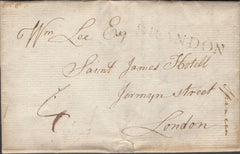 Wm Lee Esq BRANDON
Saint James Hotell
Jermyn street
London